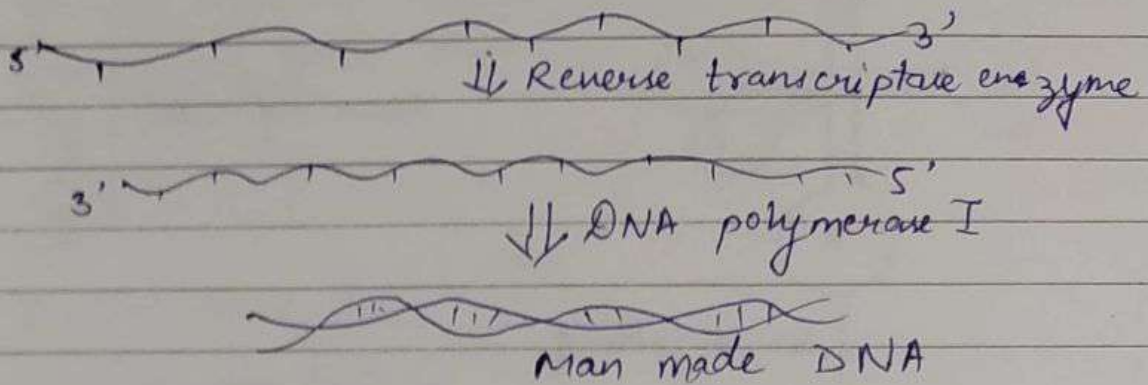 5' 3'
Reverse transcriptase enzyme
3' 5'
DNA polymerase I
Man made DNA